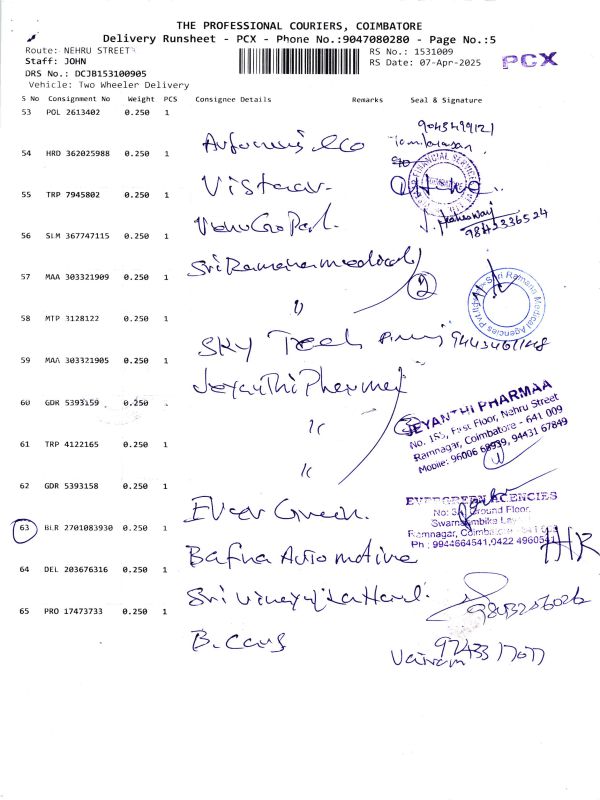 THE PROFESSIONAL COURIERS, COIMBATORE
Delivery Runsheet - PCX - Phone No.:9047080280 - Page No.:5
Route: NEHRU STREET
RS No.: 1531009
Staff: JOHN
RS Date: 07-Apr-2025
PCX
DRS No.: DCJB153100905
Vehicle: Two Wheeler Delivery
S No Consignment No Weight PCS Consignee Details Remarks Seal & Signature
53 POL 2613402 0.250 1
54 HRD 362025988 0.250 1
55 TRP 7945802 0.250 1
Vistaar
56 SLM 367747115 0.250 1
9843336524
57 MAA 303321909 0.250 1
Sri Ramana medical
2
58 MTP 3128122 0.250 1
"
Sri Ramana Medical Agencies Pvt
59 MAA 303321905 0.250 1
SKY Tech
60 GDR 5393159 0.250 1
Jeyanthi Pharmaa
JEYANTHI PHARMAA
No. 155, First Floor, Nehru Street
Ramnagar, Coimbatore - 641 009
Mobile: 96006 68939, 94431 67849
61 TRP 4122165 0.250 1
"
62 GDR 5393158 0.250 1
"
63 BLR 2701083930 0.250 1
Ever Green
EVERGREEN AGENCIES
Ground Floor,
Ramnagar, Coimbatore
Ph : 9944664541,0422 4960541
64 DEL 203676316 0.250 1
Bafna Automotive
65 PRO 17473733 0.250 1
B. Cans